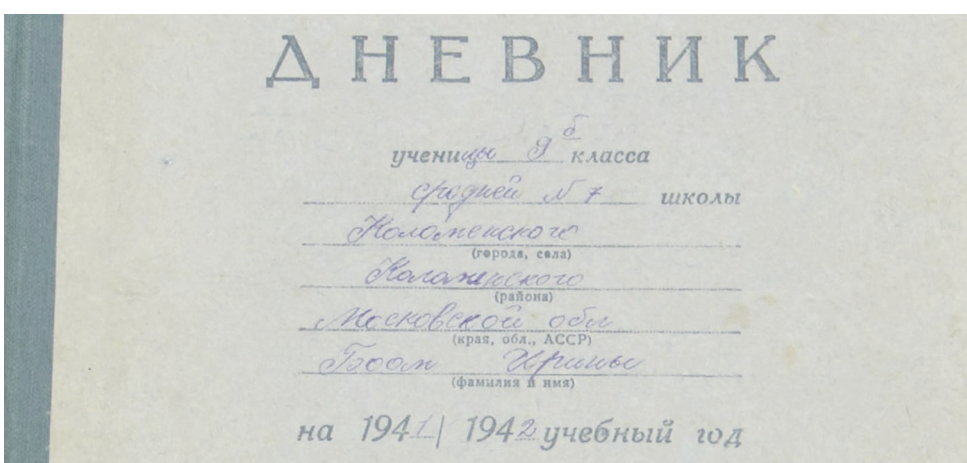 ДНЕВНИК
ученицы 9 б класса
средней N 7 школы
Коломенского
(города, села)
Коломенского
(района)
Московской обл
(края, обл., АССР)
Боом Ирины
(фамилия и имя)
на 1941/1942 учебный год